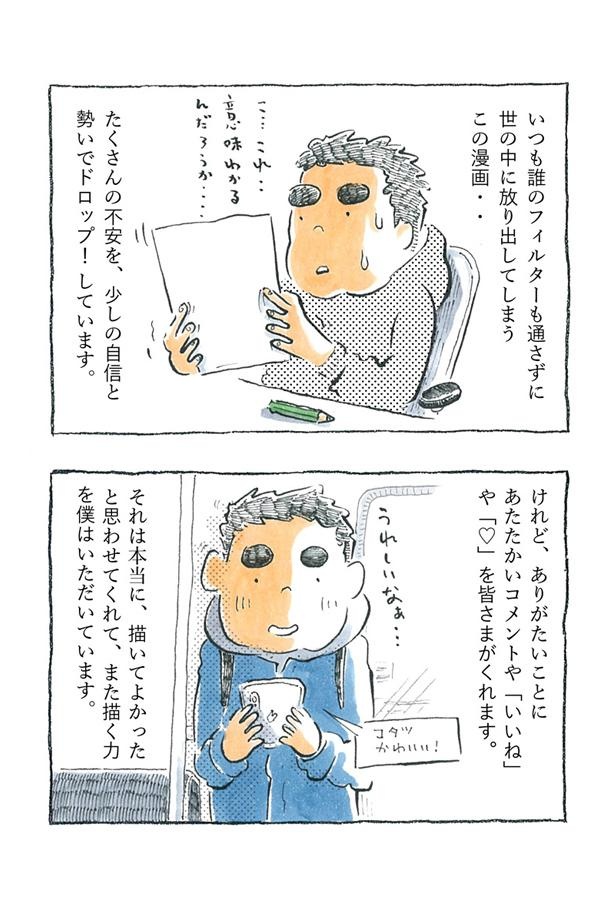 いつも誰のフィルターも通さずに
世の中に放り出してしまう
この漫画・・
こ…これ…
意味わかる
んだろうか…
たくさんの不安を、少しの自信と
勢いでドロップ！しています。
けれど、ありがたいことに
あたたかいコメントや「いいね」
や「♡」を皆さまがくれます。
うれしいなぁ…
コタツ
かわいい！
それは本当に、描いてよかった
と思わせてくれて、また描く力
を僕はいただいています。